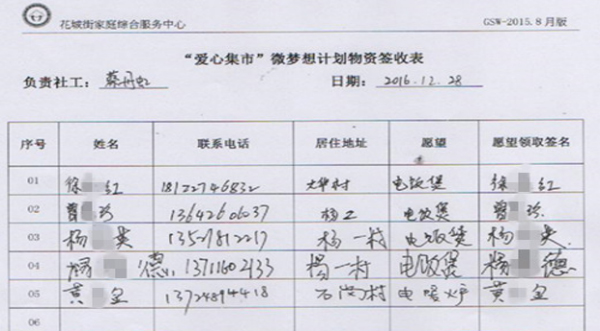 花城街家庭综合服务中心 GSW-2015.8月版
“爱心集市”微梦想计划物资签收表
负责社工： 日期：2016.12.28
序号 姓名 联系电话 居住地址 愿望 愿望领取签名
01 徐 红 18122746832 村 电饭煲 徐 红
02 曾 珍 13642606037 杨工 电饭煲 曾 珍
03 杨 英 13527812217 杨一村 电饭煲 杨 英
04 杨 德 13711602133 杨一村 电饭煲 杨 德
05 黄 金 13724894418 石岗村 电磁炉 黄 金
06